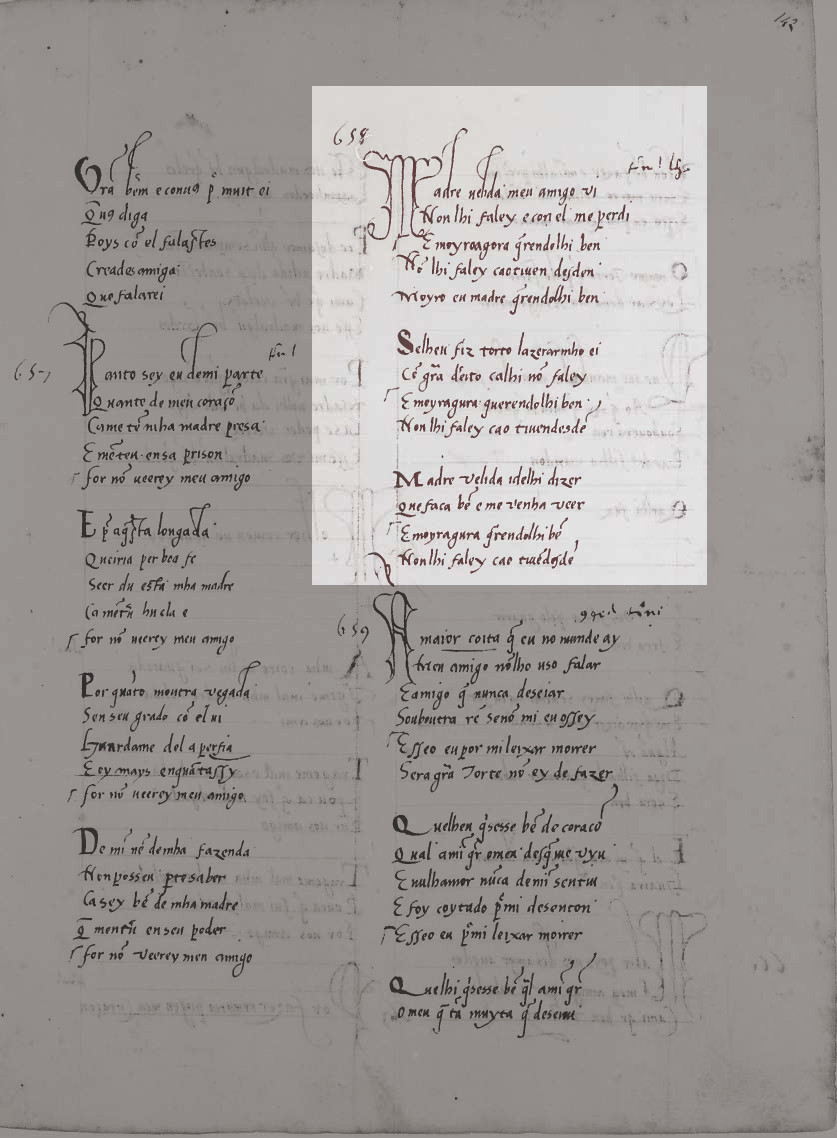 142
Ora bẽm e conuꝯ p̃ muit ei
Q̃ uꝯ diga
Poys cõ el falastes
Creades amiga
Que falarei
657
fin 1
Panto sey eu demi parte
Quante de meu coraçõ
Came tẽ mha madre presa
E mẽteu ensa prison
for nõ ueerey meu amigo
E p̃ aq̃sta longada
Queiria per boa fe
Seer du esta mha madre
for nõ ueerey meu amigo
Por quãto moutra vegada
Sen seu grado cõ el ui
Guardame del a perfia
E ey mays enquãtassy
for nõ ueerey meu amigo
De mĩ nẽ demha fazenda
Non possen pte saber
Ca sey bẽ de mha madre
Q̃ mentrr̃ en seu poder
for nõ veerey meu amigo
658
Madre uelida meu amigo vi
Non lhi faley e con el me perdi
E moyroagora q̃rendolhi ben
Nõ lhi faley caotiuen desden
Moyro eu madre q̃rendolhi ben
Selheu fiz torto lazerarmho ei
Cõ grã dẽito calhi nõ faley
E moyragura querendolhi ben
Non lhi faley cao tiuendesdẽ
Madre velida idelhi dizer
Que faca bẽ e me venha veer
E moyragura q̃rendolhi bẽ
Non lhi faley cao tiuẽdesdẽ
659
A maior coita q̃ eu no mundo ay
A meu amigo nõlho uso falar
E amigo q̃ nunca deseiar
Souboutra rẽ senõ mi eu ossey
Esseo eu por mi leixar morrer
Sera grã torte nõ ey de fazer
Quelheu q̃sesse bẽ de coraçõ
Qual ami q̃r omeu desq̃me vyu
E nulhamor nũca demĩ sentiu
E foy coytado p̃ mi desenton
Esseo eu p̃ mi leixar morrer
Quelhi q̃sesse bẽ q̃l ami q̃r
O meu q̃ tã muyta q̃ deseiou